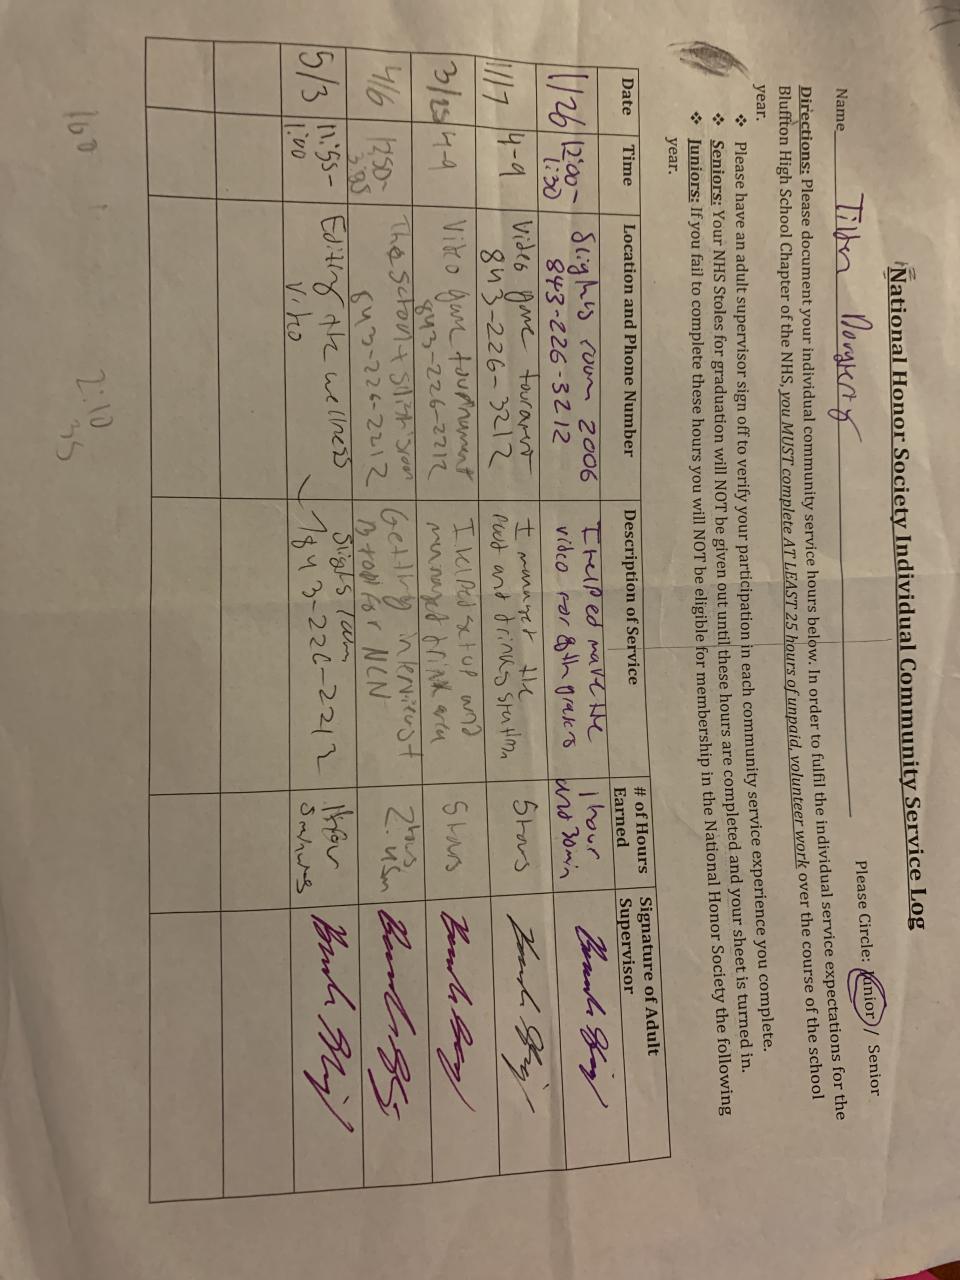 National Honor Society Individual Community Service Log
Name Please Circle: Junior / Senior
Directions: Please document your individual community service hours below. In order to fulfil the individual service expectations for the
Bluffton High School Chapter of the NHS, you MUST complete AT LEAST 25 hours of unpaid, volunteer work over the course of the school
year.
❖ Please have an adult supervisor sign off to verify your participation in each community service experience you complete.
❖ Seniors: Your NHS Stoles for graduation will NOT be given out until these hours are completed and your sheet is turned in.
❖ Juniors: If you fail to complete these hours you will NOT be eligible for membership in the National Honor Society the following
year.
Date Time Location and Phone Number Description of Service # of Hours Earned Signature of Adult Supervisor
1/26 12:00- room 2006 I helped make the 1 hour
1:30 843-226-3212 video for 8th graders and 30 min
1/17 4-9 Video game I the
843-226-3212 and station
3/25 4-9 Video game tournament I helped set up and
843-226-2212 managed drink area
4/6 12:50- The school + Getting interviews +
843-226-2212 for NCN
5/3 11:55- Editing the wellness 1 hour
1:00 843-226-2212 5
160
2:10
35